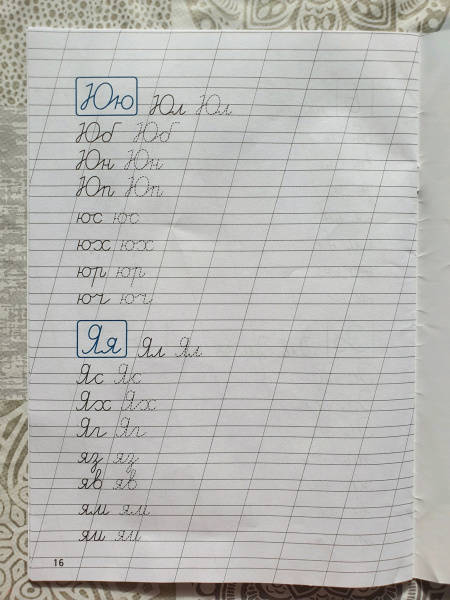 Юю Юл Юл
Юб Юб
Юн Юн
Юп Юп
юс юс
юх юх
юр юр
юч юч
Яя Ял Ял
Яс Яс
Ях Ях
Яг Яг
яз яз
яв яв
ям ям
яи яи
16